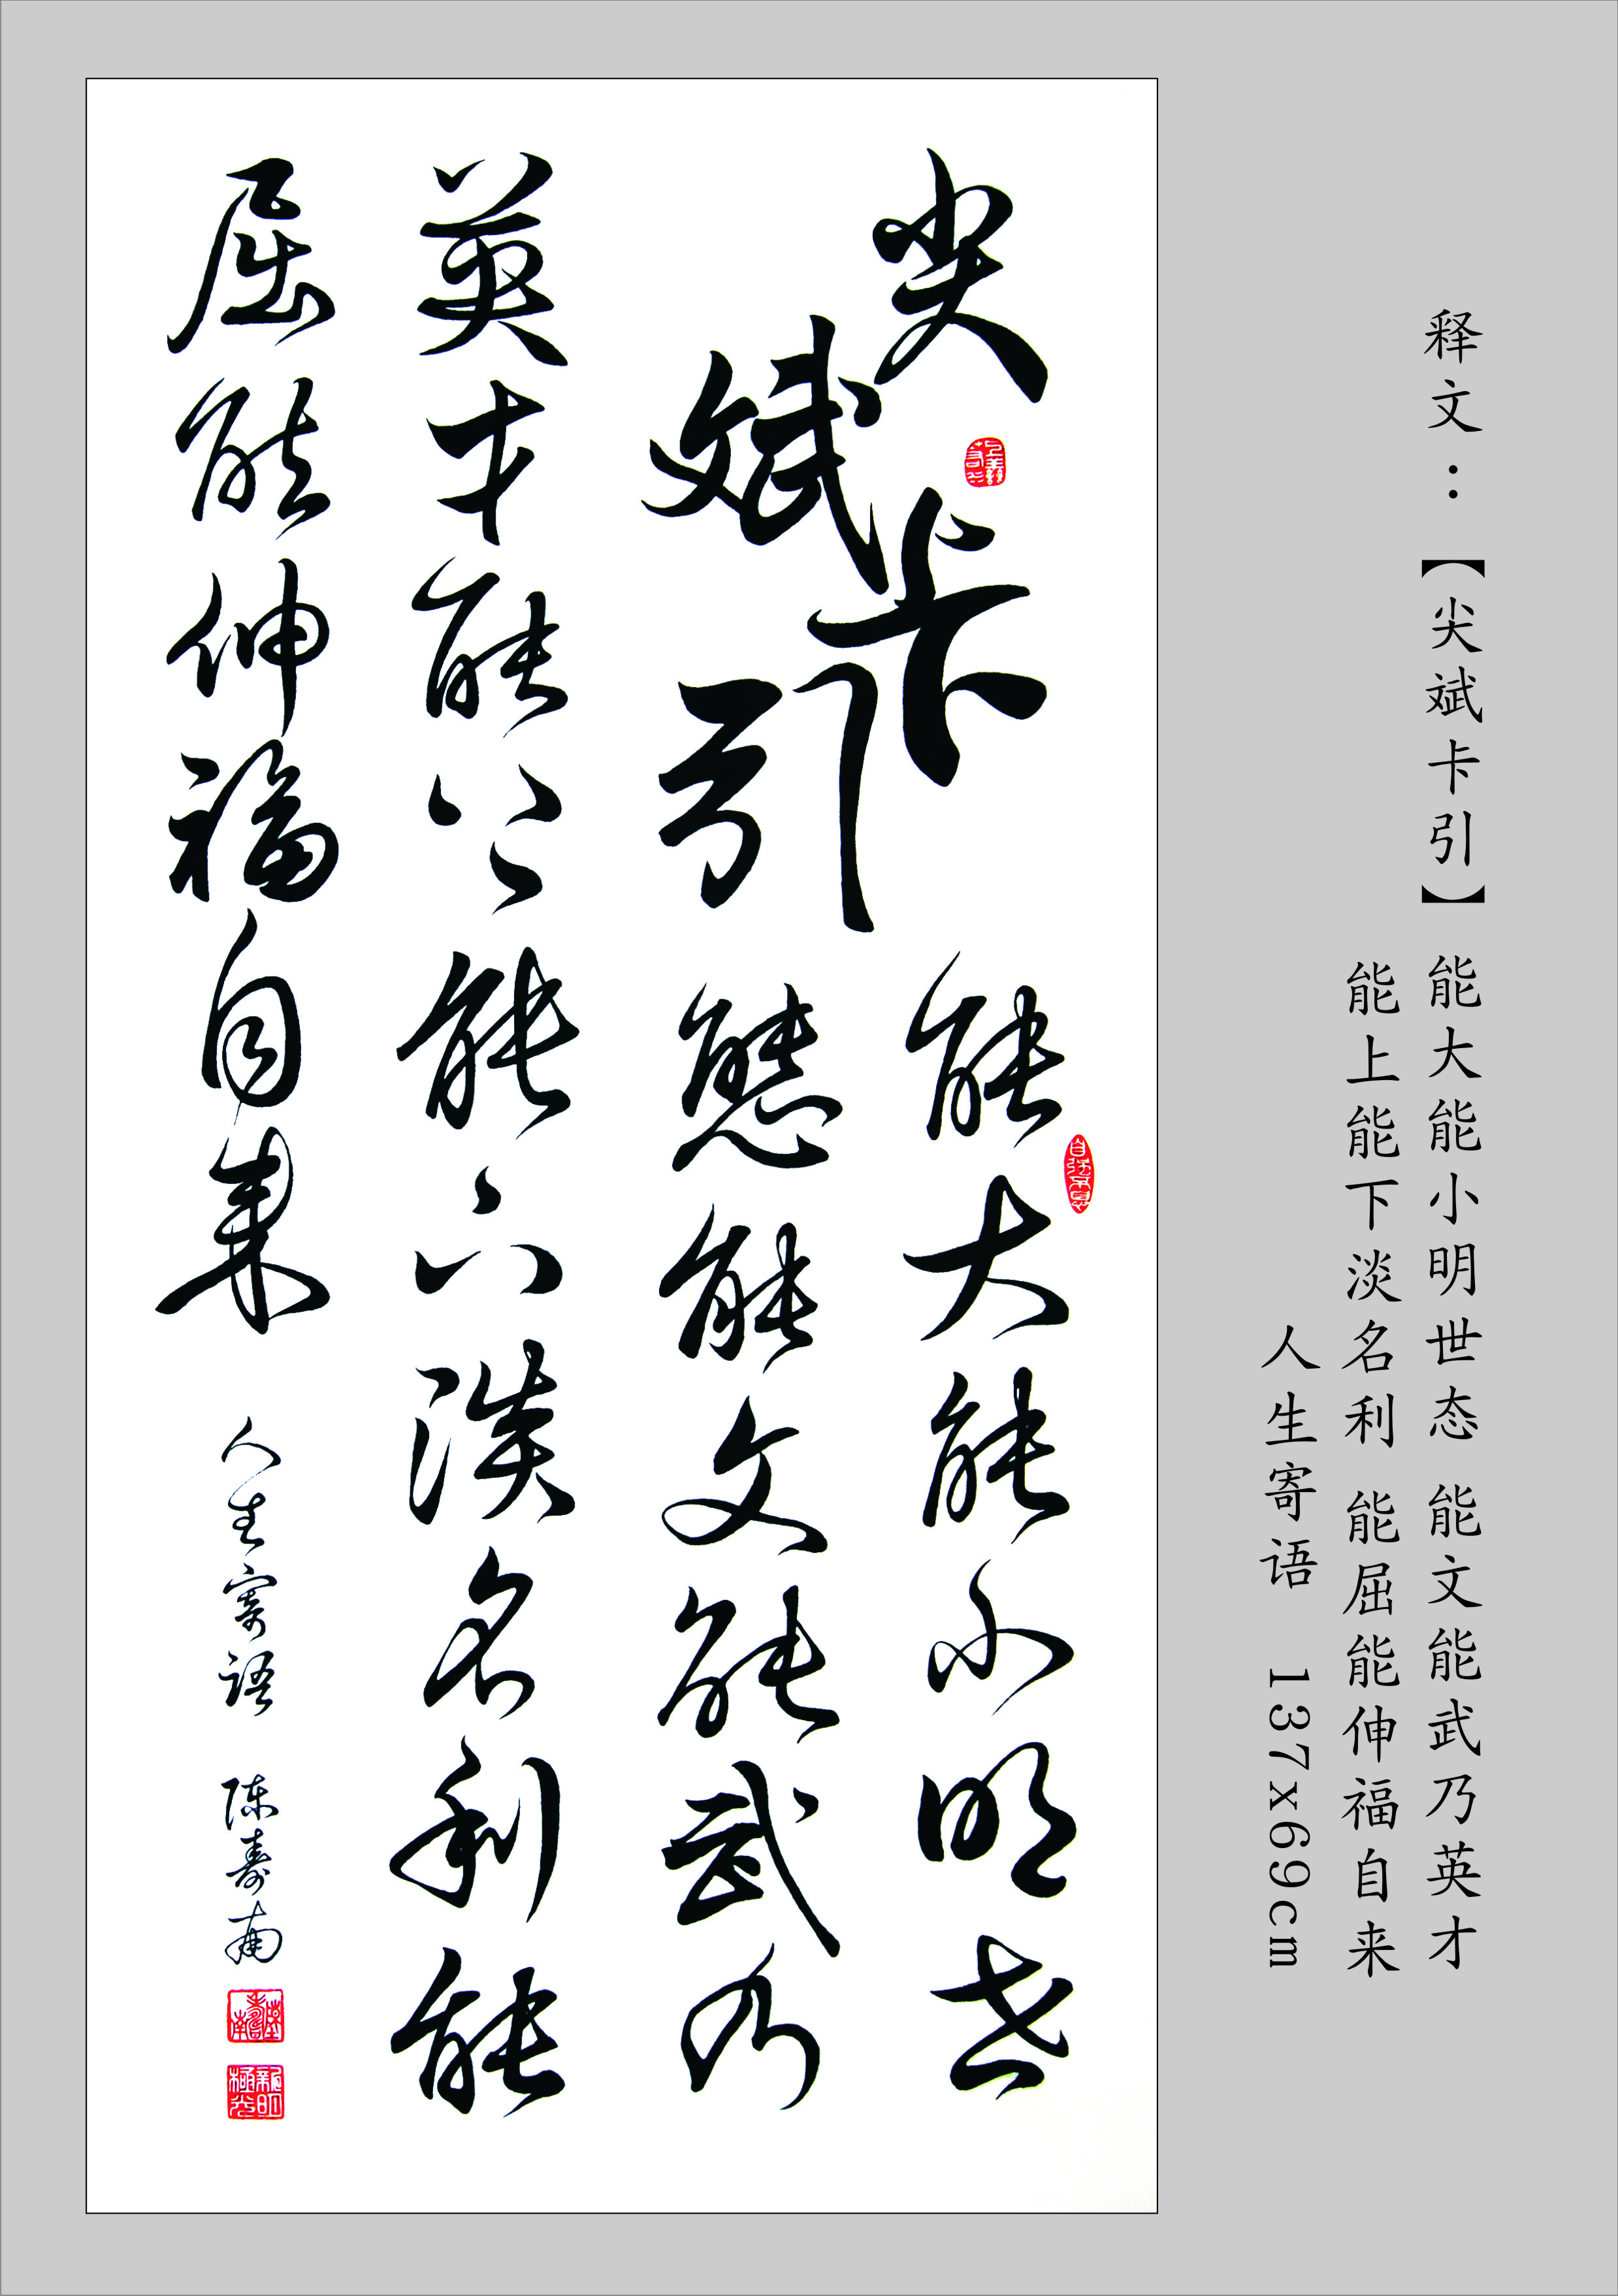 释文：【尖斌卡引】能大能小明世态 能文能武乃英才
能上能下淡名利 能屈能伸福自来
人生寄语 137x69cm
尖斌卡引
能大能小明世
态能文能武乃
英才能上能下淡名利能
屈能伸福自来 人生寄语 陈寿南